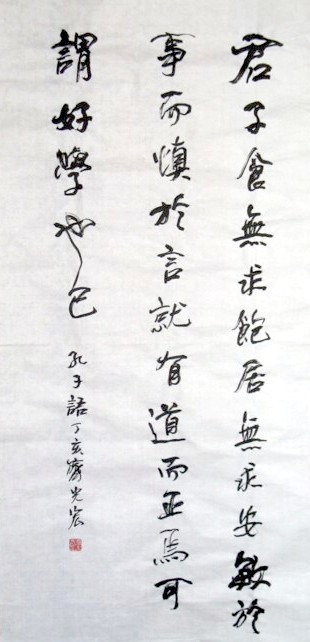 君子食無求飽居無求安敏於
事而慎於言就有道而正焉可
謂好學也已
孔子語丁亥齋光宏